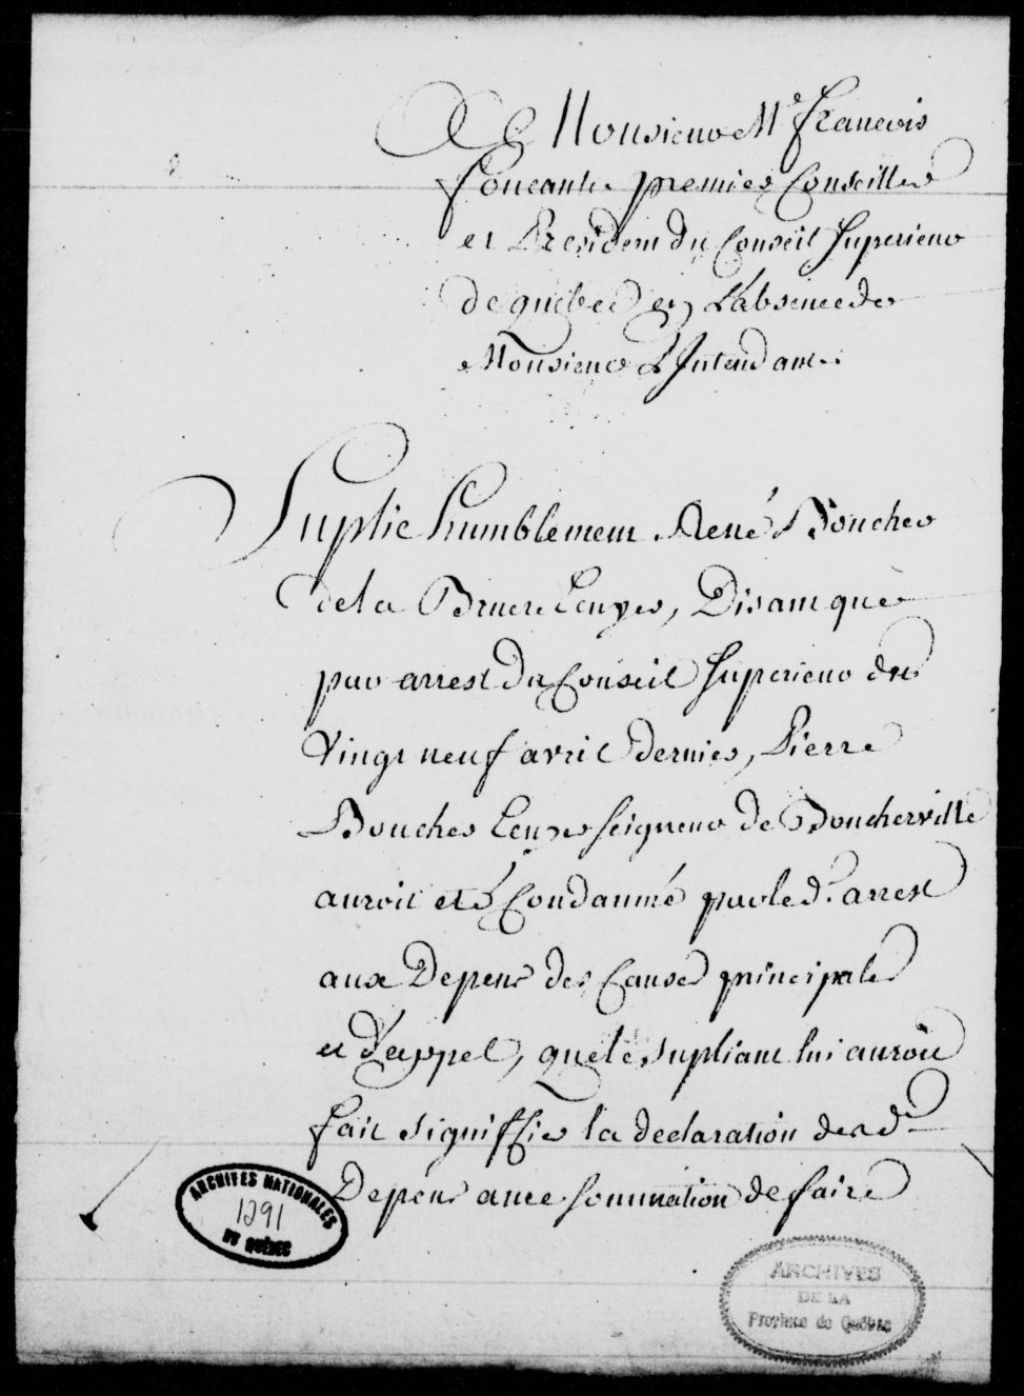 A Monsieur Me. Francois
foucault premier Conseiller
et President du Conseil Superieur
de quebec en L'absence de
Monsieur L'Intendant
Suplie humblement René Boucher
de la Bruere Ecuyer, Disant que
par arrest du Conseil Superieur du
Vingt neuf avril dernier, Pierre
Boucher Ecuyer Seigneur de Boucherville
auroit eté Condamné par led. arrest
aux Depens des Causes principale
et d'appel, que le supliant lui auroit
fait signiffier la declaration desd.
Depens avec sommation de faire
ARCHIVES NATIONALES
1291
DU QUÉBEC
ARCHIVES
DE LA
Province de Québec